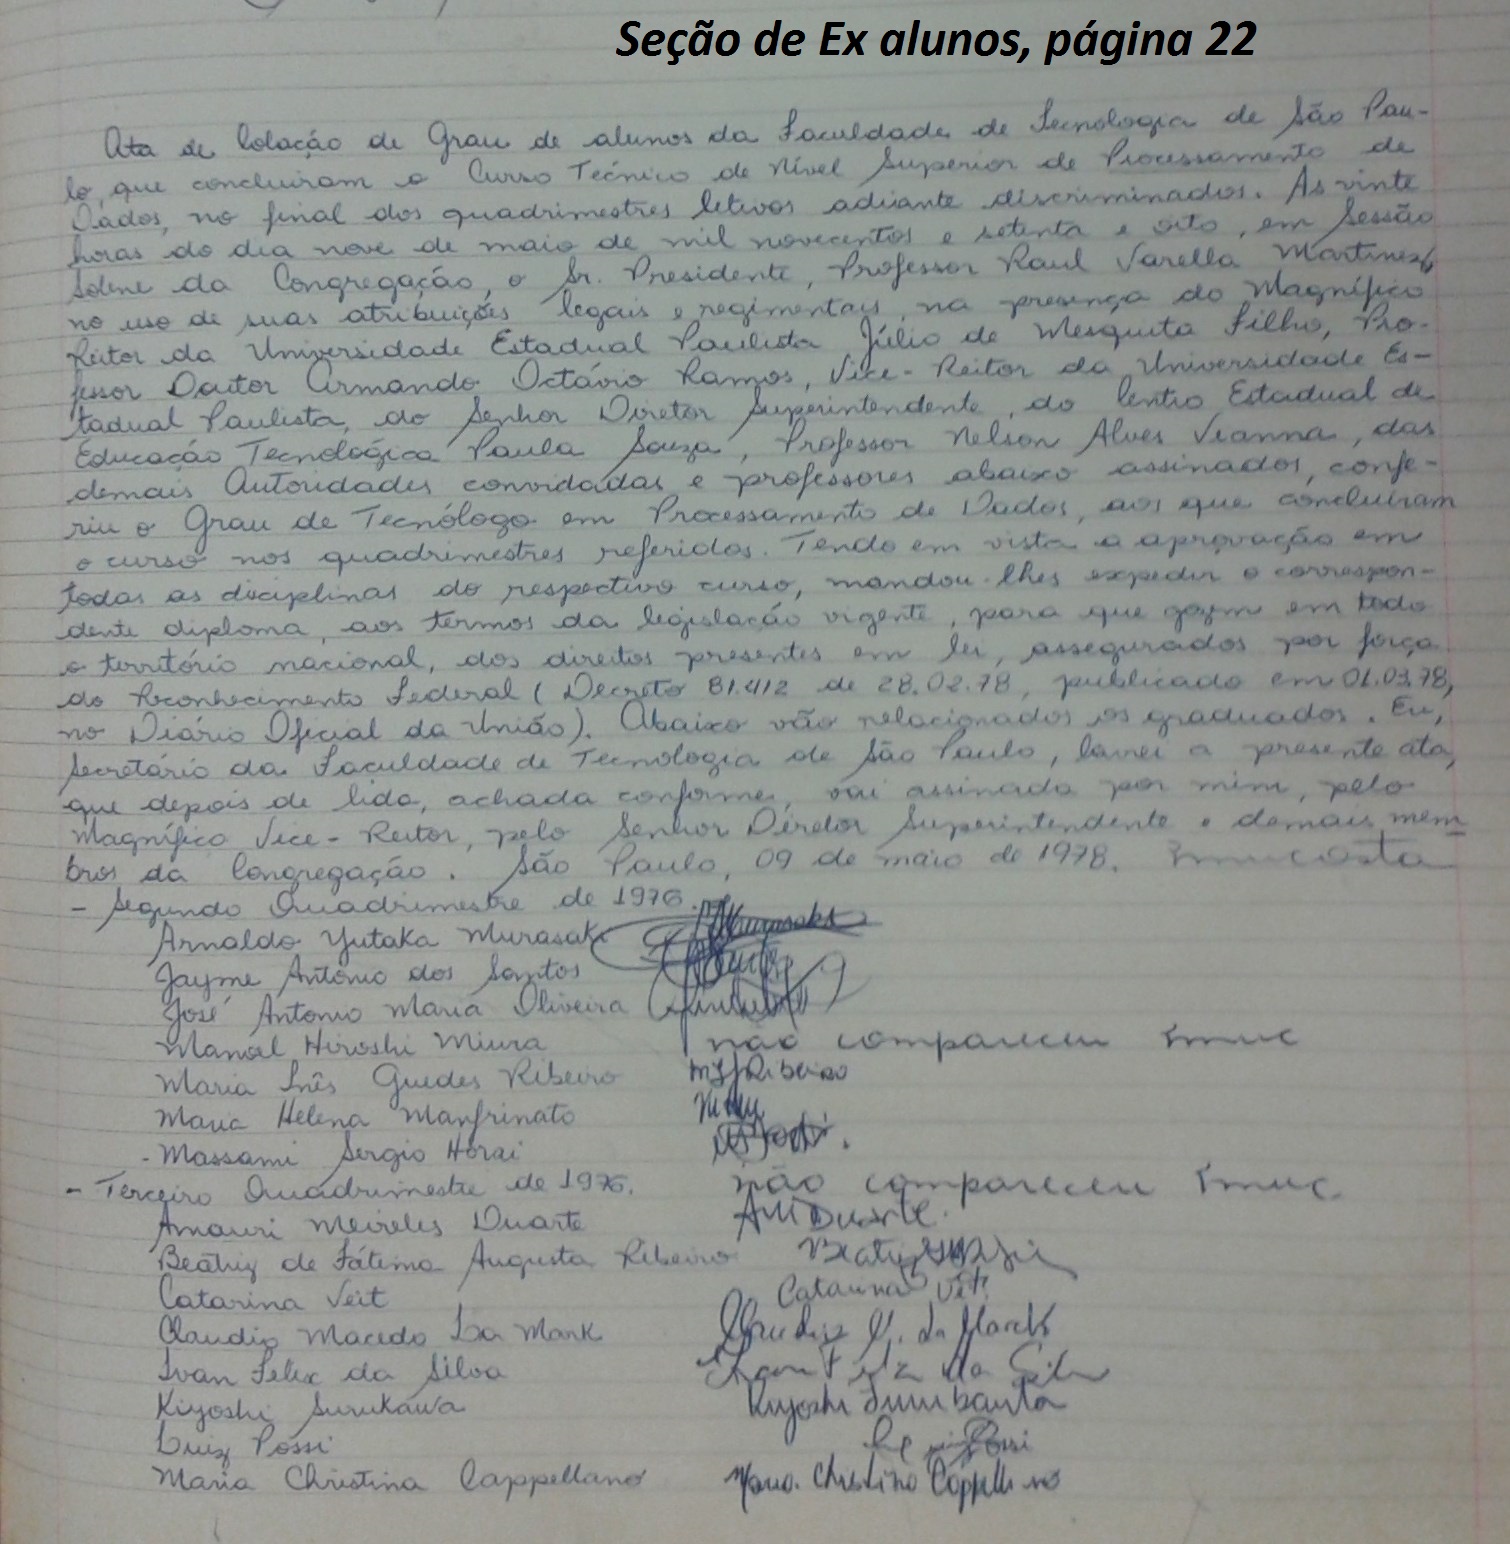 Seção de Ex alunos, página 22
Ata de Colação de Grau de alunos da Faculdade de Tecnologia de São Pau-
lo, que concluiram o Curso Técnico de Nível Superior de Processamento de
Dados, no final dos quadrimestres letivos adiante discriminados. As vinte
horas do dia nove de maio de mil novecentos e setenta e oito, em Sessão
Solene da Congregação, o Sr. Presidente, Professor Raul Varella Martinez,
no uso de suas atribuições legais e regimentais, na presença do Magnífico
Reitor da Universidade Estadual Paulista Júlio de Mesquita Filho, Pro-
fessor Doutor Armando Octávio Ramos, Vice-Reitor da Universidade Es-
tadual Paulista, do Senhor Diretor Superintendente, do Centro Estadual de
Educação Tecnológica Paula Souza, Professor Nelson Alves Vianna, das
demais Autoridades convidadas e professores abaixo assinados, confe-
riu o Grau de Tecnólogo em Processamento de Dados, aos que concluiram
o curso nos quadrimestres referidos. Tendo em vista a aprovação em
todas as disciplinas do respectivo curso, mandou-lhes expedir o correspon-
dente diploma, aos termos da legislação vigente, para que gozem em todo
o território nacional, dos direitos presentes em lei, assegurados por força
do Reconhecimento Federal (Decreto 81.412 de 28.02.78, publicado em 01.03.78,
no Diário Oficial da União). Abaixo vão relacionados os graduados. Eu,
Secretário da Faculdade de Tecnologia de São Paulo, lavrei a presente ata,
que depois de lida, achada conforme, vai assinada por mim, pelo
Magnífico Vice-Reitor, pelo Senhor Diretor Superintendente e demais mem
bros da Congregação. São Paulo, 09 de maio de 1978.
- Segundo Quadrimestre de 1976.
Arnaldo Yutaka Murasaki
Jayme Antonio dos Santos
José Antonio Maria Oliveira
Manoel Hiroshi Miura não compareceu
Maria Inês Guedes Ribeiro MIGRibeiro
Maria Helena Manfrinato
- Massami Sergio Horai
- Terceiro Quadrimestre de 1976. não compareceu
Amauri Meireles Duarte AMDuarte.
Beatriz de Fátima Augusta Ribeiro
Catarina Veit Catarina Veit
Claudio Macedo La Mark
Ivan Felix da Silva Ivan Felix da Silva
Kiyoshi Surukawa Kiyoshi
Luiz Possi
Maria Christina Cappellano Maria Christina Cappellano